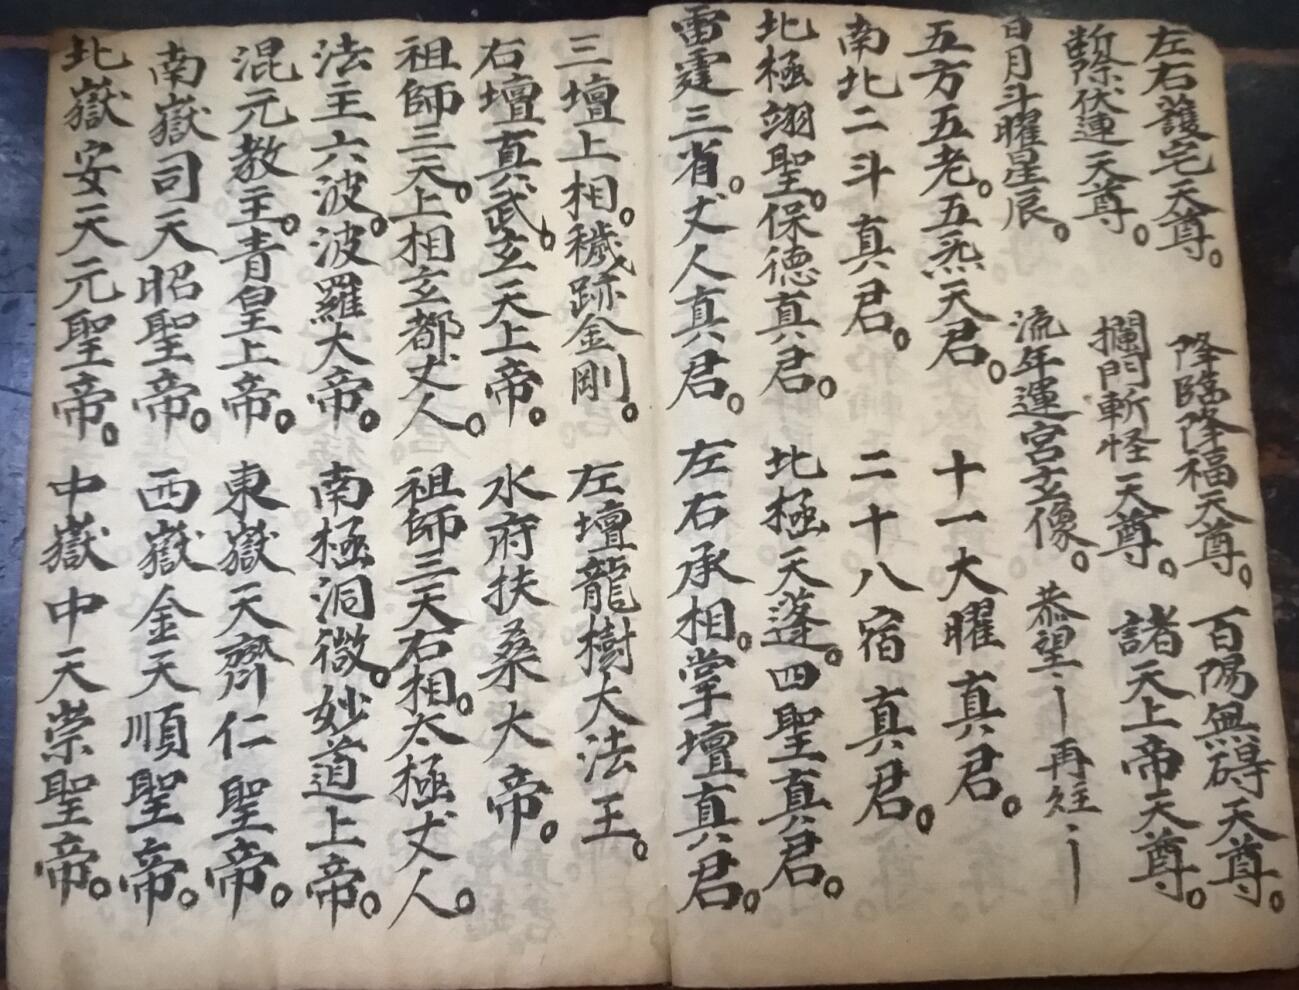 左右護宅天尊。降臨降福天尊。百陽無碍天尊。
断除伏連天尊。攔門斬怪天尊。諸天上帝天尊。
日月斗曜星辰。流年運宮玄像。恭望再
五方五老。五炁天君。十一大曜真君。
南北二斗真君。二十八宿真君。
北極翊聖。保德真君。北極天蓬。四聖真君。
雷霆三省。丈人真君。左右承相。掌壇真君。
三壇上相。穢跡金剛。左壇龍樹大法王。
右壇真武。玄天上帝。水府扶桑大帝。
祖師三天。上相玄都丈人。祖師三天右相。太極丈人。
法主六波。波羅大帝。南極洞微。妙道上帝。
混元教主。青皇上帝。東嶽天齊仁聖帝。
南嶽司天昭聖帝。西嶽金天順聖帝。
北嶽安天元聖帝。中嶽中天崇聖帝。